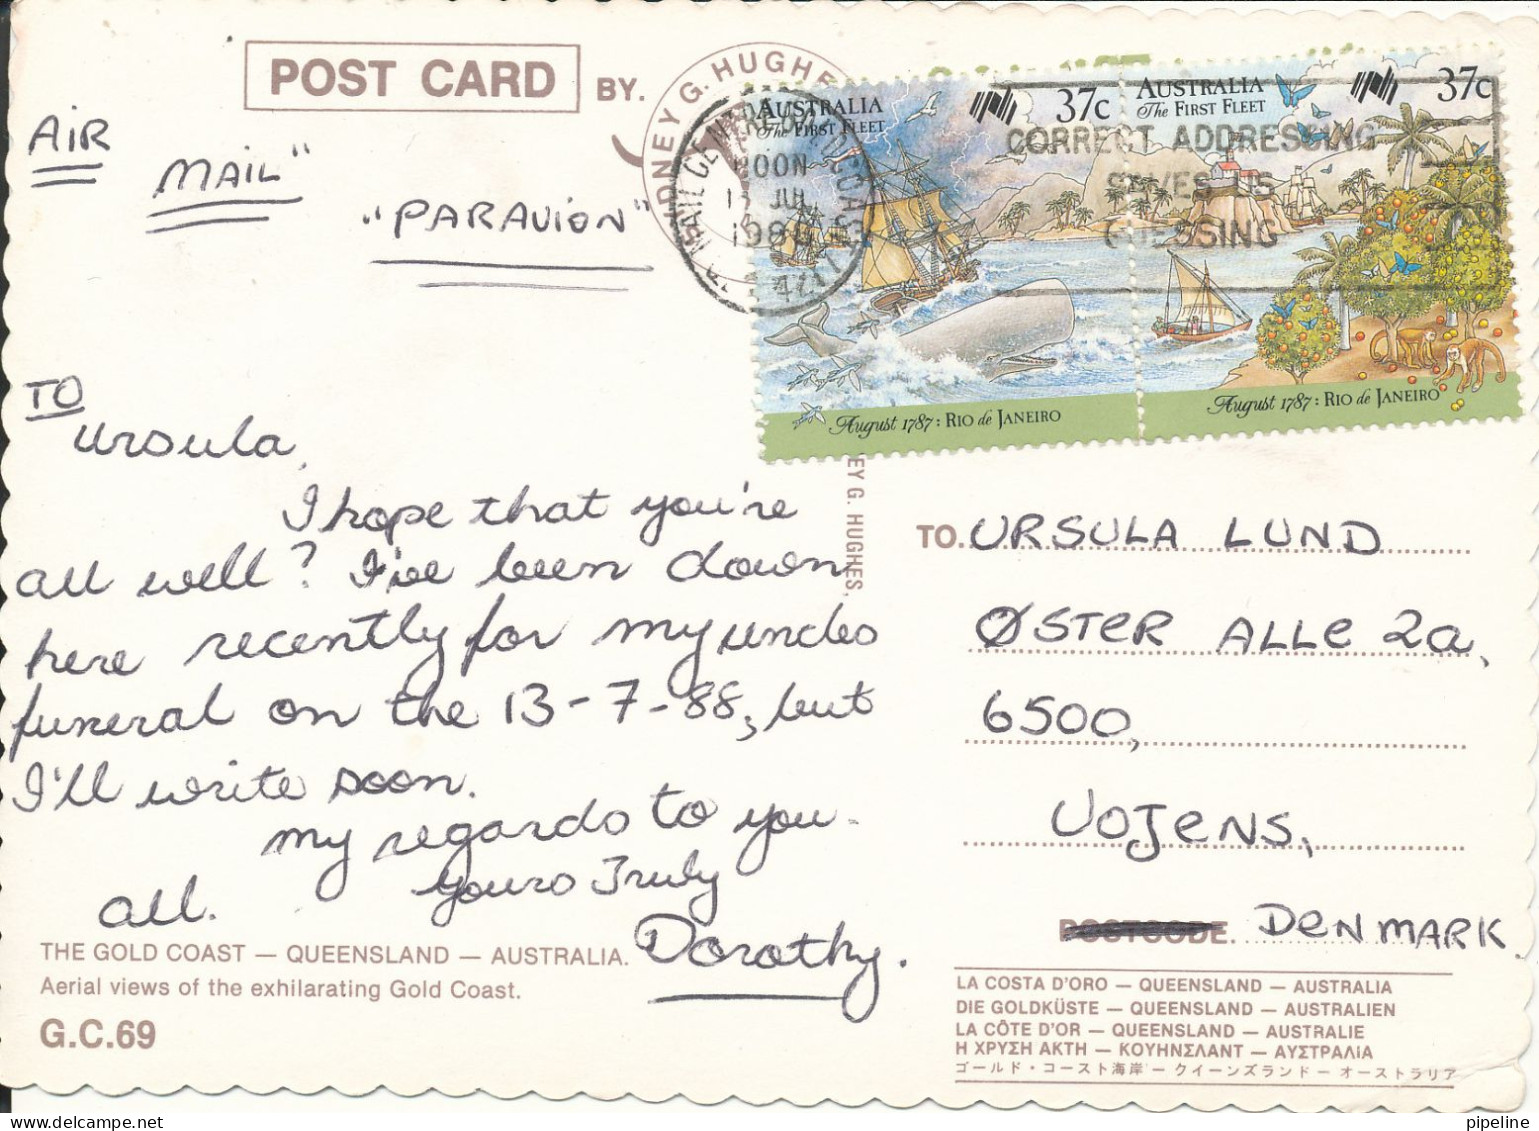 POST CARD BY.
SIDNEY G. HUGHES
AIR
MAIL"
"PARAVION"
AUSTRALIA 37c
The FIRST FLEET
AUSTRALIA 37c
The FIRST FLEET
MAIL CENTRE
GOLD COAST
800N
JUL
1988
4217
CORRECT ADDRESSING
SAVES US
GUESSING
August 1787: RIO de JANEIRO
August 1787: RIO de JANEIRO
TO
Ursula,
I hope that you're
all well? I've been down
here recently for my uncles
funeral on the 13-7-88, but
I'll write soon.
my regards to you
all.
Yours Truly
Dorothy.
EY G. HUGHES.
TO. URSULA LUND
ØSTER ALLE 2a,
6500,
VOJENS,
POSTCODE. DENMARK
THE GOLD COAST — QUEENSLAND — AUSTRALIA.
Aerial views of the exhilarating Gold Coast.
G.C.69
LA COSTA D'ORO — QUEENSLAND — AUSTRALIA
DIE GOLDKÜSTE — QUEENSLAND — AUSTRALIEN
LA CÔTE D'OR — QUEENSLAND — AUSTRALIE
Η ΧΡΥΣΗ ΑΚΤΗ — ΚΟΥΗΝΣΛΑΝΤ — ΑΥΣΤΡΑΛΙΑ
ゴールド・コースト海岸 — クイーンズランド — オーストラリア
pipeline